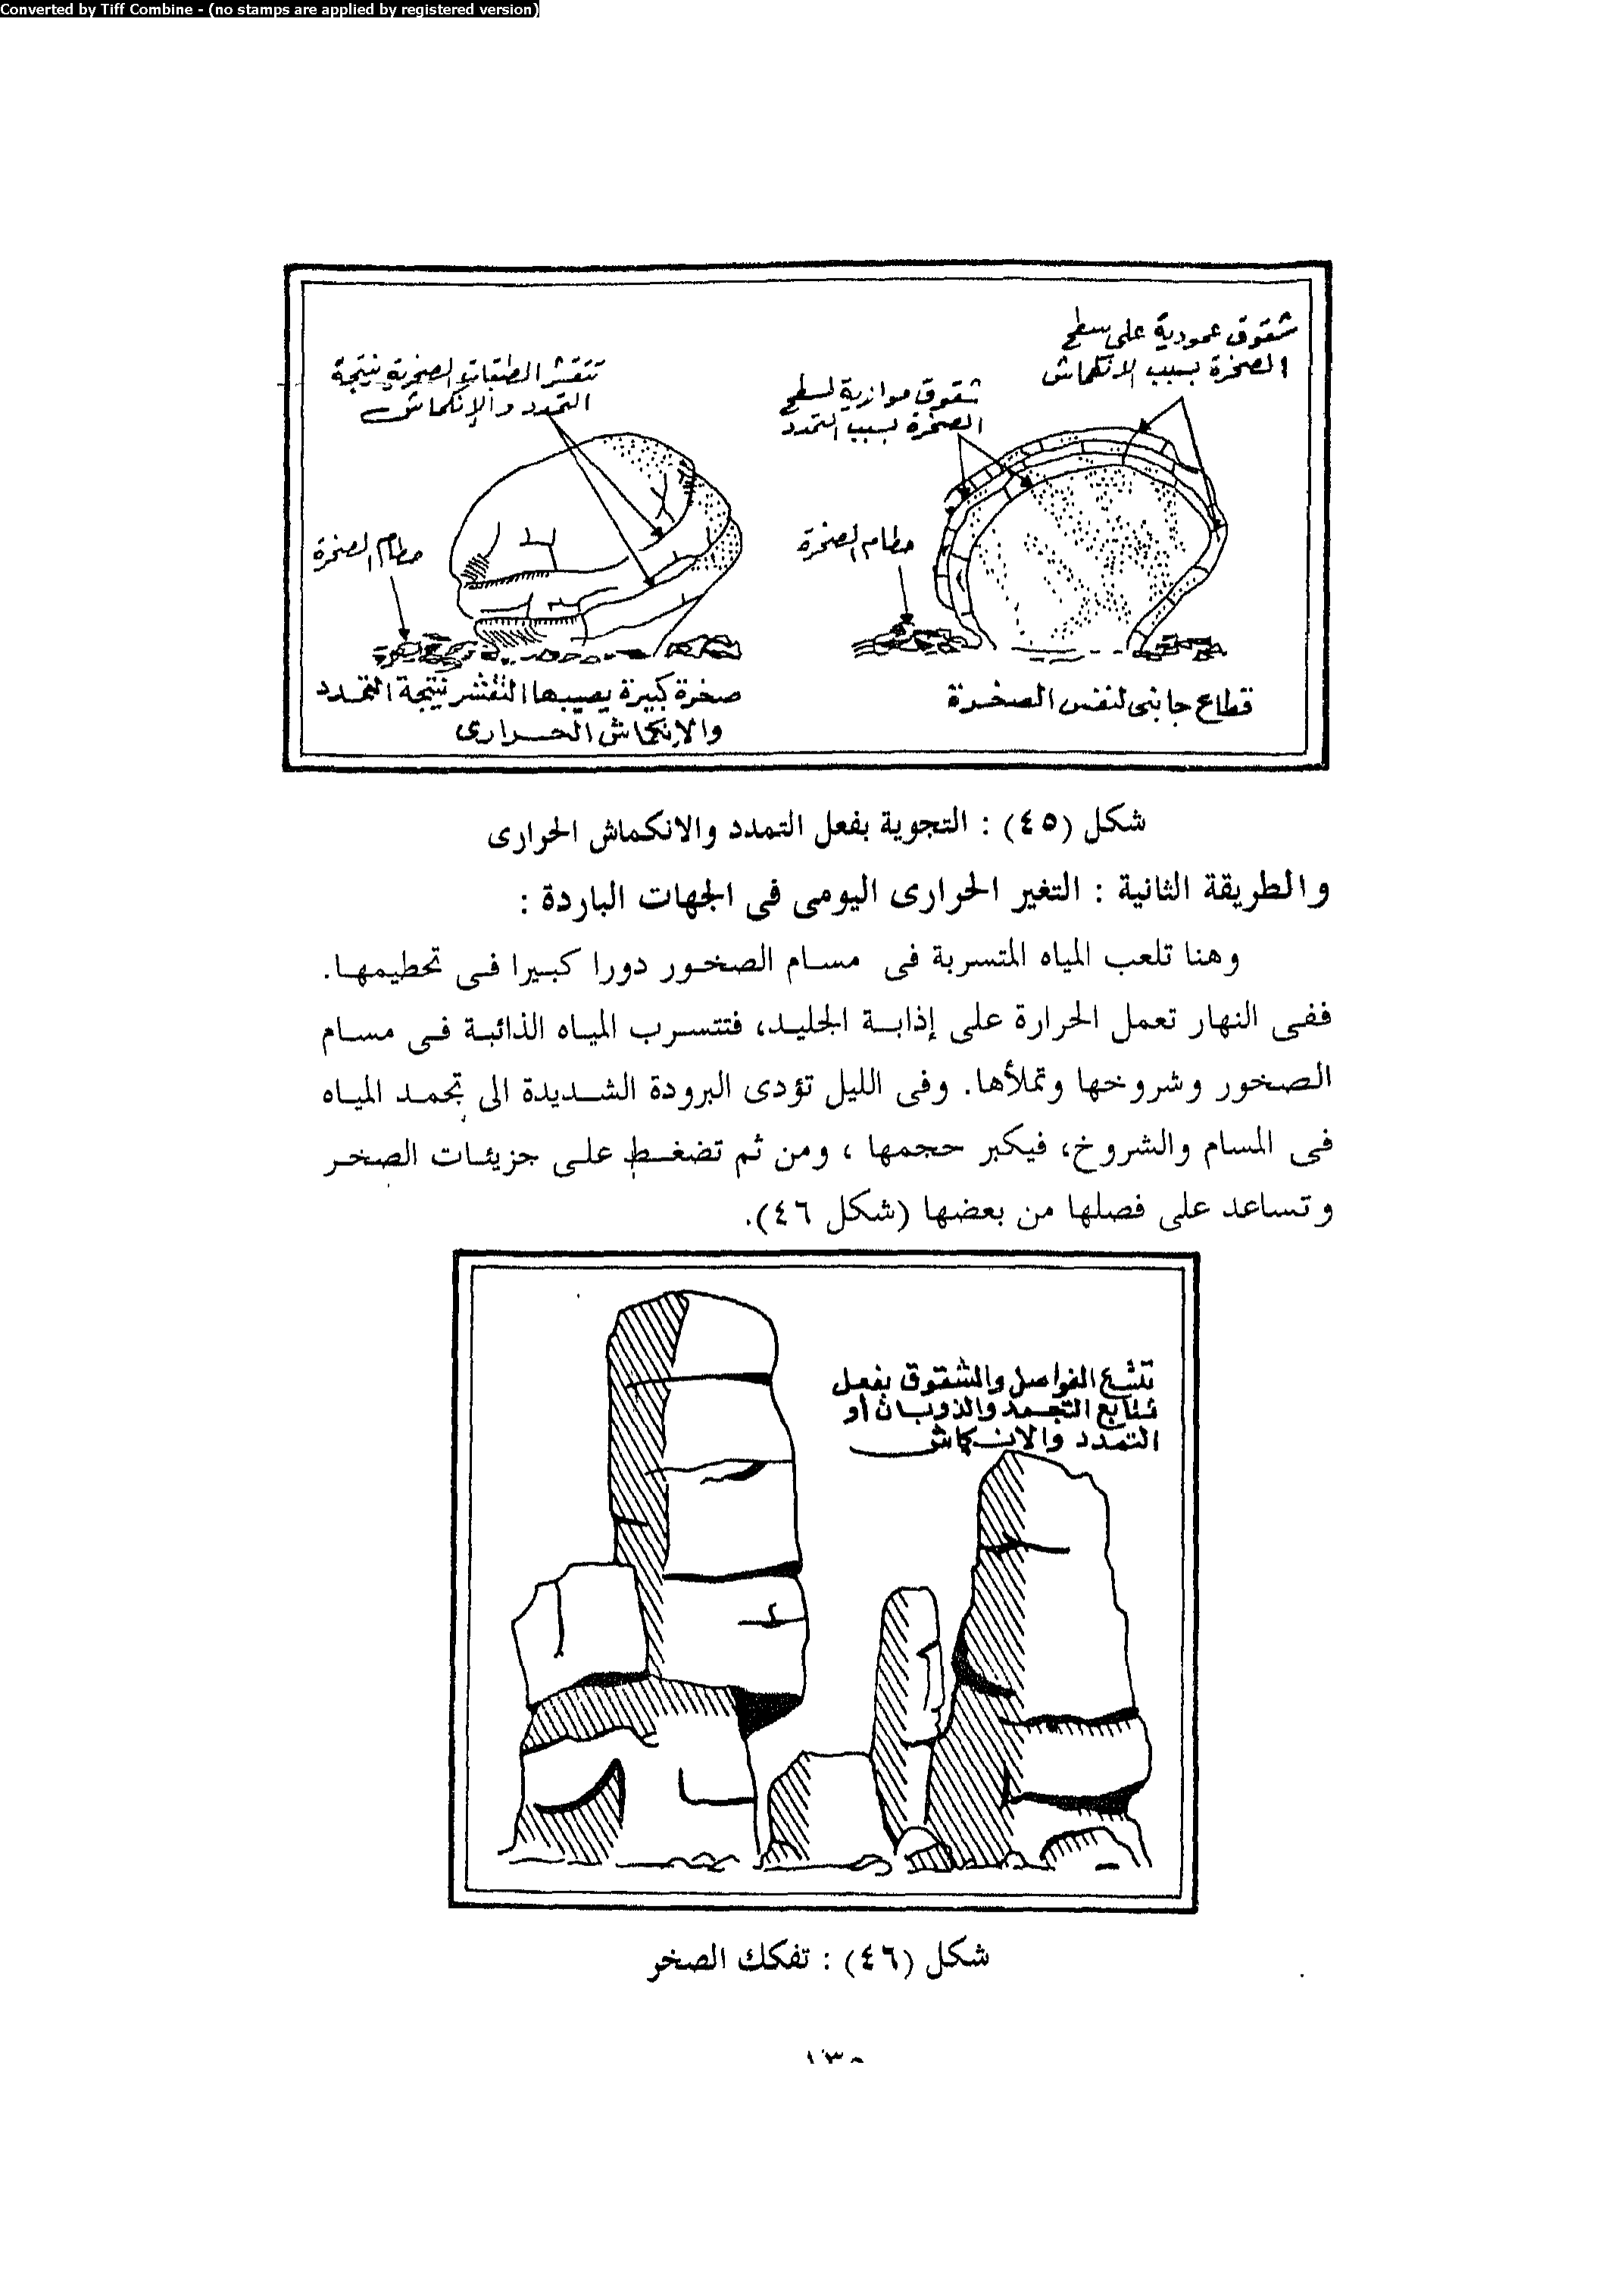 Converted by Tiff Combine - (no stamps are applied by registered version)
شقوق عمودية على سطح
الصخرة بسبب الانكماش
شقوق موازية لسطح
الصخرة بسبب التمدد
حطام الصخرة
قطاع جانبى لنفس الصخرة
تتقشر الطبقات الصخرية نتيجة
التمدد والإنكماش
حطام الصخرة
صخرة كبيرة يصيبها التقشر نتيجة التمدد
والإنكماش الحرارى
شكل (٤٥) : التجوية بفعل التمدد والانكماش الحرارى
والطريقة الثانية : التغير الحرارى اليومى فى الجهات الباردة :
وهنا تلعب المياه المتسربة فى مسام الصخور دورا كبيرا فى تحطيمها.
ففى النهار تعمل الحرارة على إذابة الجليد، فتتسرب المياه الذائبة فى مسام
الصخور وشروخها وتملأها. وفى الليل تؤدى البرودة الشديدة الى تجمد المياه
فى المسام والشروخ، فيكبر حجمها ، ومن ثم تضغط على جزيئات الصخر
وتساعد على فصلها من بعضها (شكل ٤٦).
تتسع الفواصل والشقوق بفعل
تتابع التجمد والذوبان أو
التمدد والانكماش
شكل (٤٦) : تفكك الصخر
١٣٥